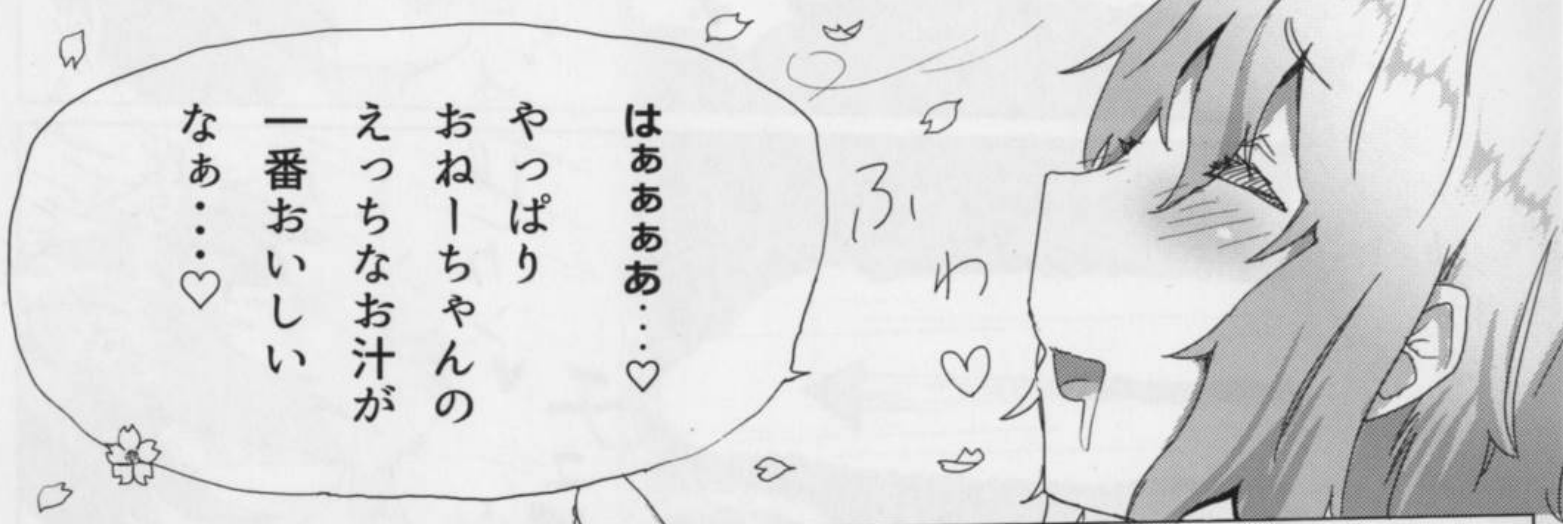 ふわ♡
はぁぁぁぁ‥‥♡
やっぱり
おねーちゃんの
えっちなお汁が
一番おいしい
なぁ・・・♡